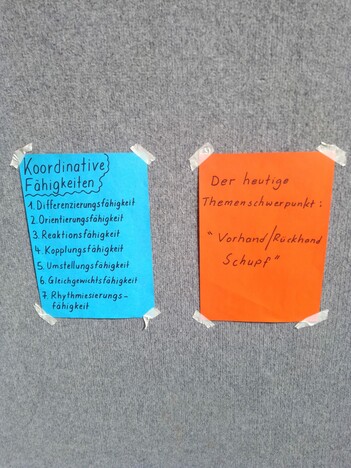 Koordinative
Fähigkeiten
1. Differenzierungsfähigkeit
2. Orientierungsfähigkeit
3. Reaktionsfähigkeit
4. Kopplungsfähigkeit
5. Umstellungsfähigkeit
6. Gleichgewichtsfähigkeit
7. Rhythmiesierungs-
fähigkeit
Der heutige
Themenschwerpunkt:
"Vorhand/Rückhand
Schupf"